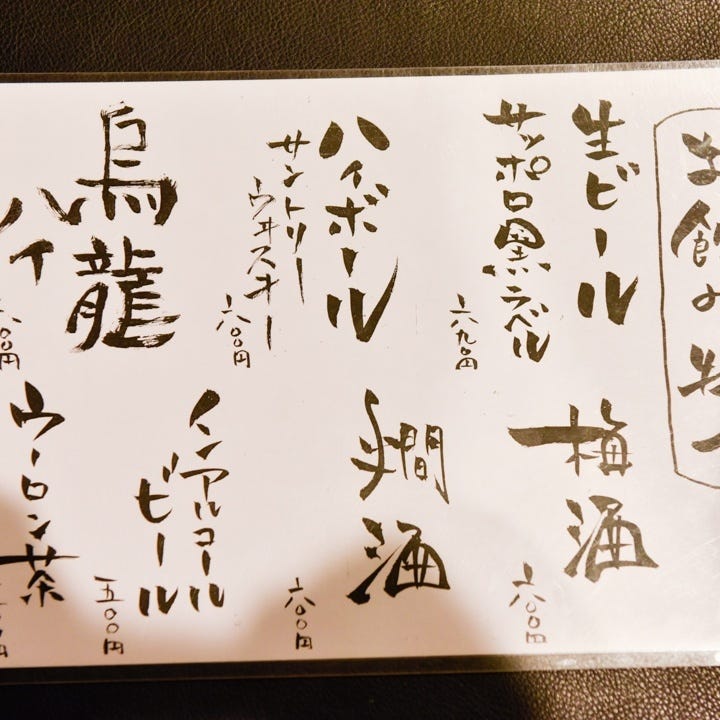 お飲み物
生ビール
サッポロ黒ラベル
六九〇円
ハイボール
サントリー
ウヰスキー
六〇〇円
烏龍
ハイ
六〇〇円
梅酒
六〇〇円
燗酒
六〇〇円
ノンアルコール
ビール
五〇〇円
ウーロン茶